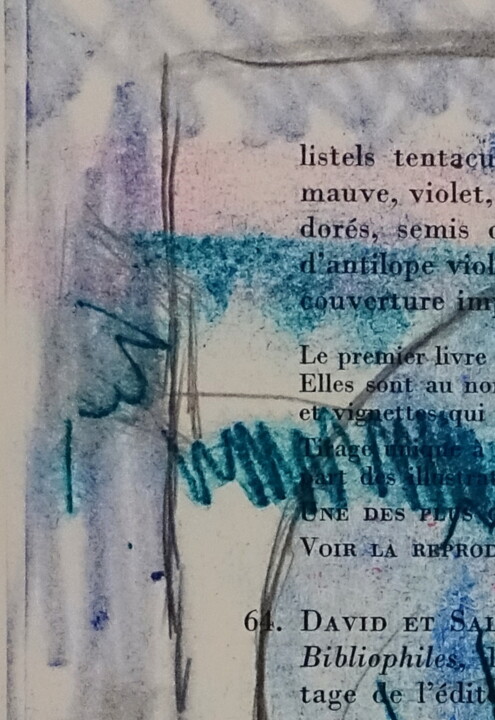 listels tentacu
mauve, violet,
dorés, semis
d'antilope viol
couverture im
Le premier livre
Elles sont au no
et vignettes qui
Tirage unique à
part des illustrat
UNE DES PLUS
VOIR LA REPROD
64. DAVID ET SAL
Bibliophiles,
tage de l'édit